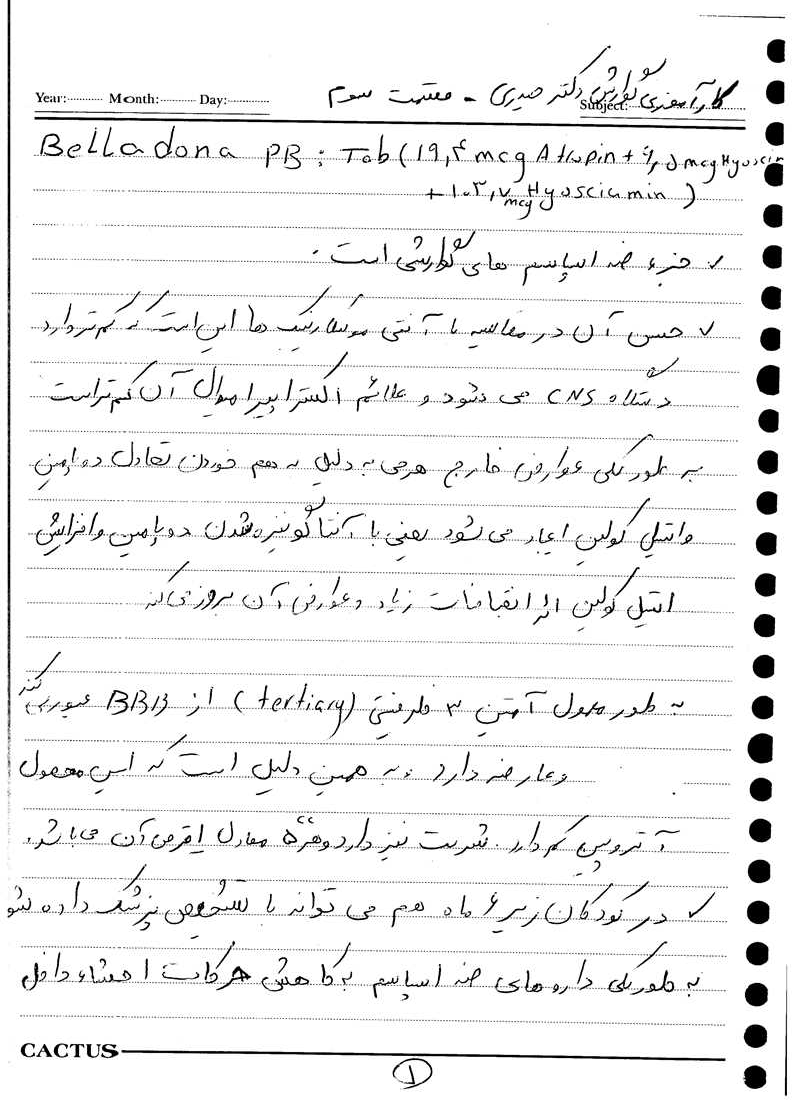 Year: Month: Day: Subject:
کارآموزی گوارش دکتر حیدری - قسمت سوم
Belladona PB : Tab (19,۴ mcg Atropin + ۶,۵ mcg Hyoscin
+ ۱۰۳,۷ mcg Hyosciamin )
✓ جزء ضد اسپاسم های گوارشی است .
✓ حسن آن در مقایسه با آنتی موسکارینیک ها این است که کم تر وارد
دستگاه CNS می شود و علائم اکستراپیرامیدال آن کم تر است
به طور کلی عوارض خارج هرمی به دلیل به هم خوردن تعادل دوپامین
و استیل کولین ایجاد می شود یعنی با آنتاگونیزه شدن دوپامین و افزایش
استیل کولین اثر انقباضات زیاد و عوارض آن بروز می کند
به طور معمول آمین ۳ ظرفیتی (tertiary) از BBB عبور می کند
و عارضه دارد و به همین دلیل است که این محصول
آتروپین کم دارد . شربت نیز دارد و هر ۵cc معادل ۱ قرص آن می باشد .
✓ در کودکان زیر ۶ ماه هم می تواند با تشخیص پزشک داده شو
به طور کلی داروهای ضد اسپاسم به کاهش حرکات احشاء داخل
CACTUS
۱